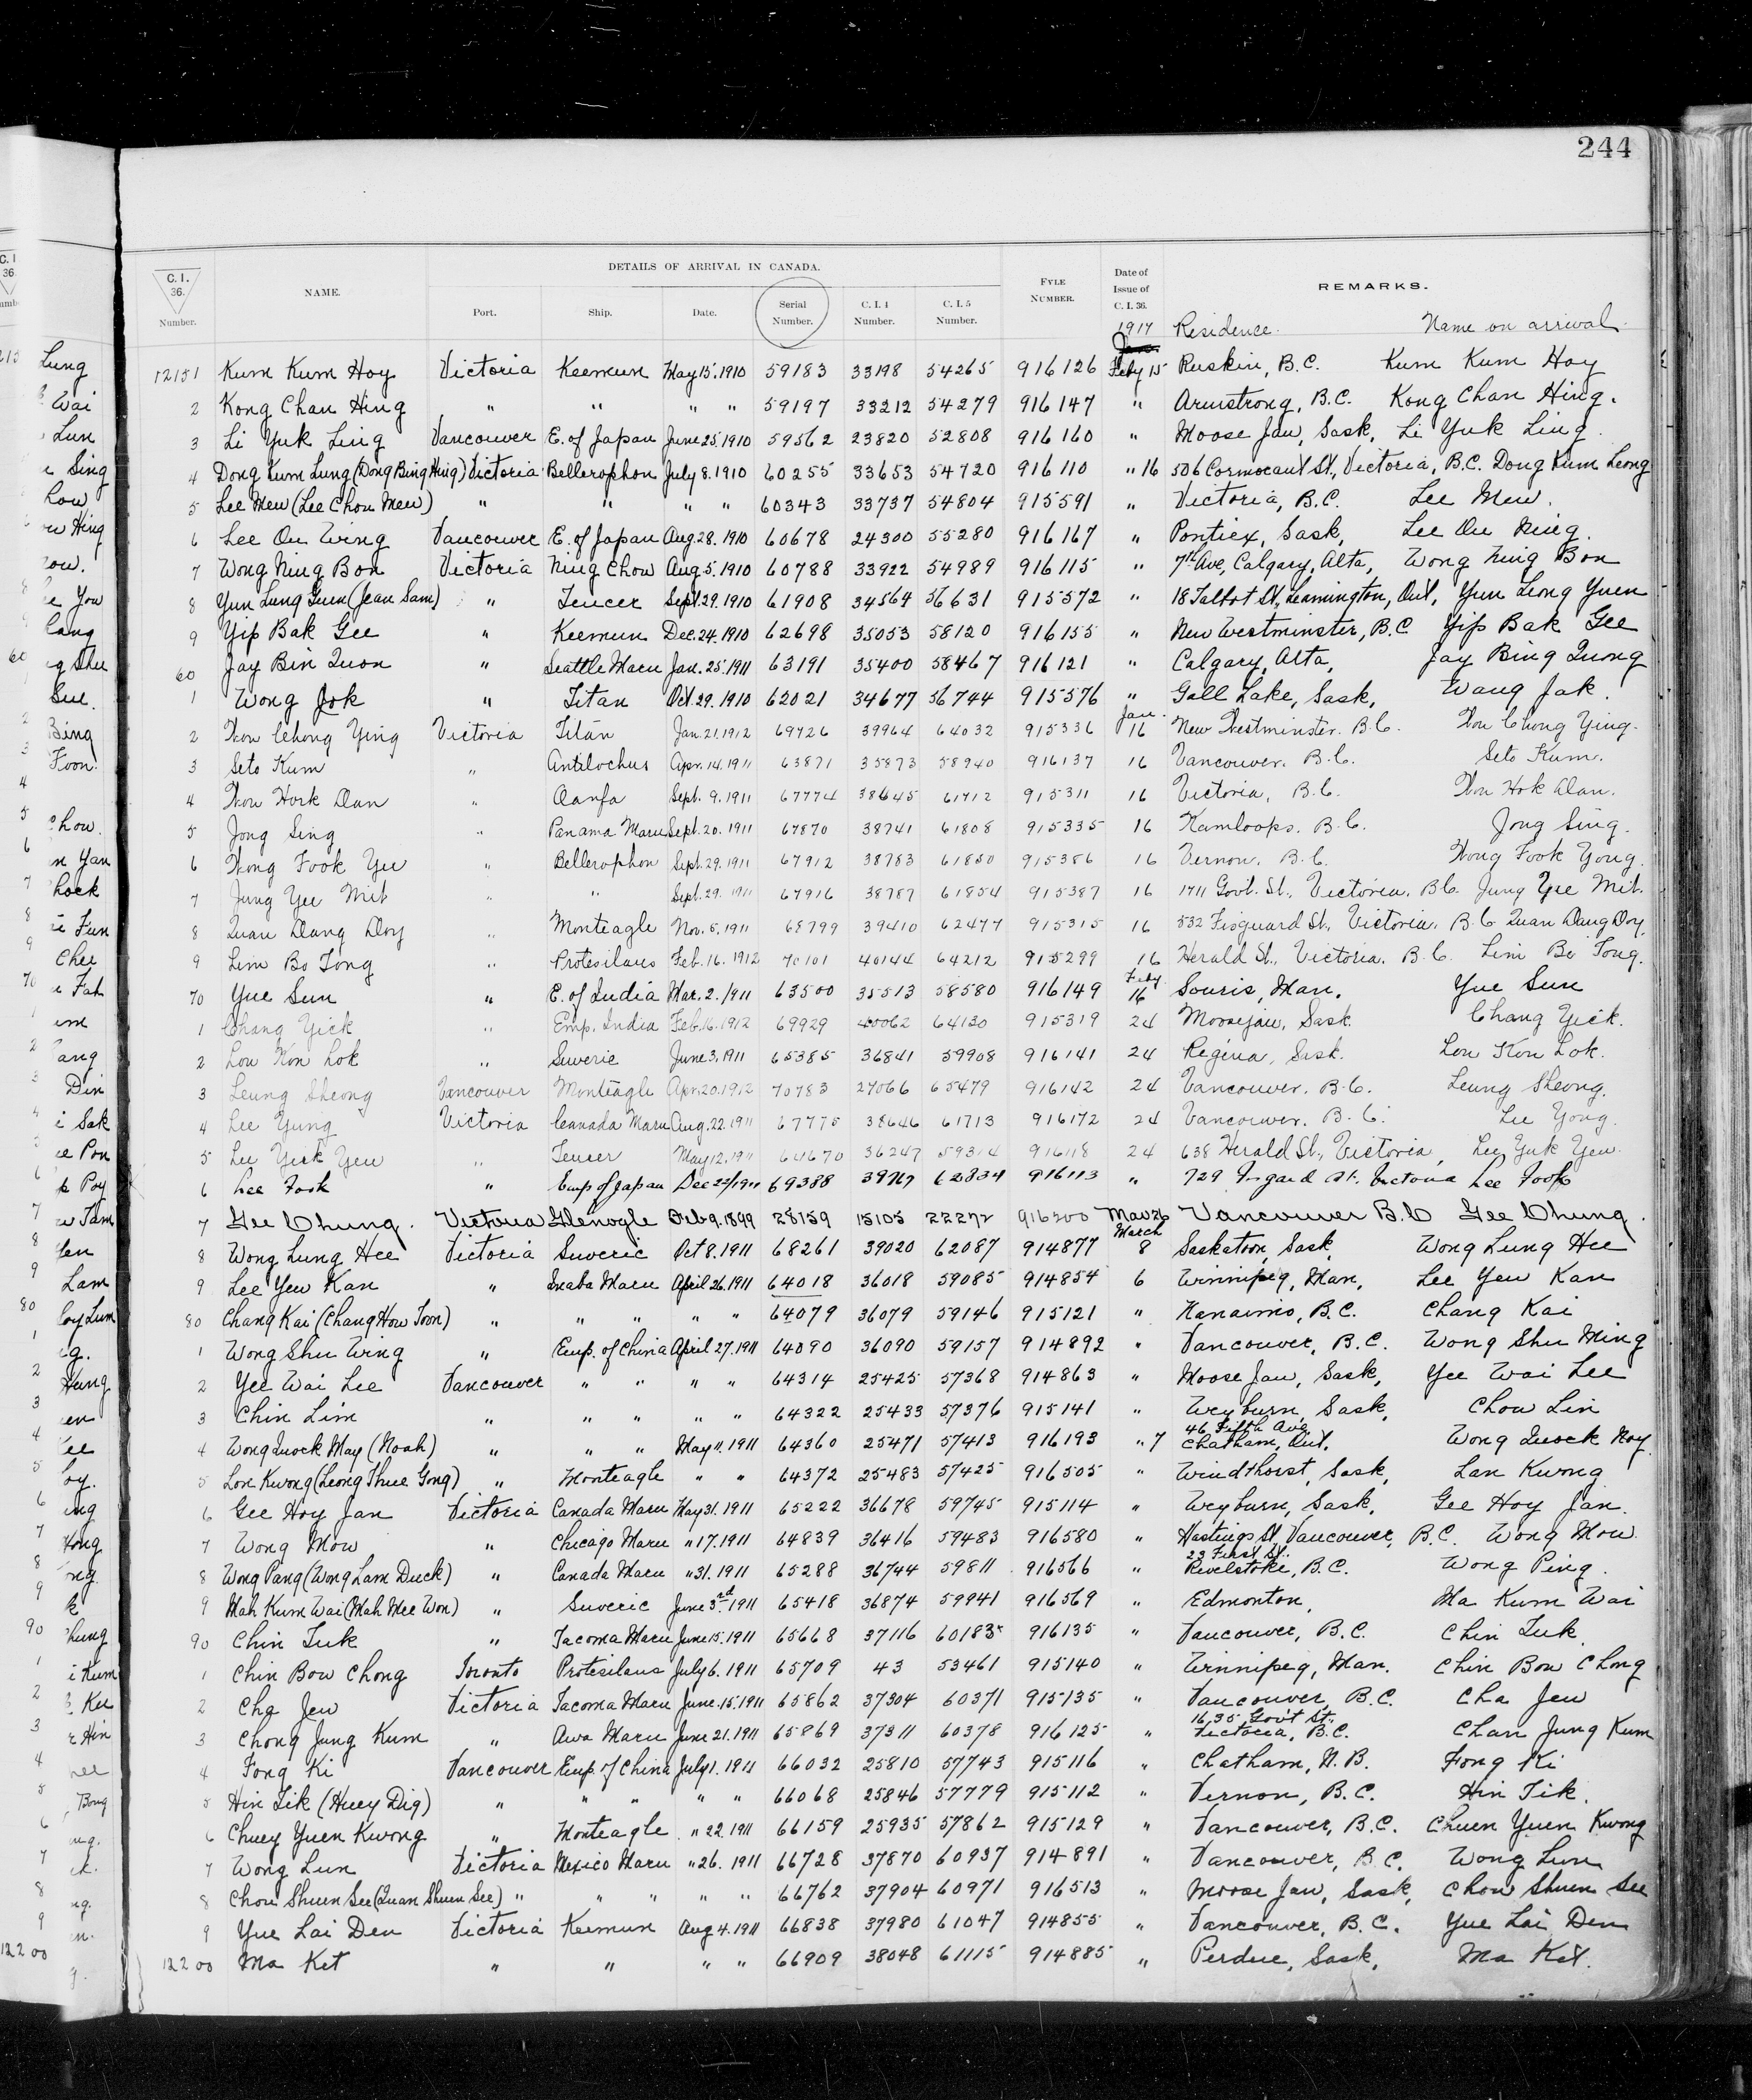 244
C. I. 36. Number. NAME. DETAILS OF ARRIVAL IN CANADA. Port. Ship. Date. Serial Number. C. I. 4 Number. C. I. 5 Number. FYLE NUMBER. Date of Issue of C. I. 36. REMARKS.
1917 Residence. Name on arrival.
12151 Kum Kum Hoy Victoria Keemun May 15, 1910 59183 33198 54265 916126 Feby 15 Ruskin, B.C. Kum Kum Hoy
2 Kong Chan Hing " " " " 59197 33212 54279 916147 " Armstrong, B.C. Kong Chan Hing.
3 Li Yuk Ling Vancouver E. of Japan June 25, 1910 59562 23820 52808 916160 " Moose Jaw, Sask, Li Yuk Ling.
4 Dong Kum Lung (Dong Bing Hing) Victoria Bellerophon July 8. 1910 60255 33653 54720 916110 " 16 506 Cormorant St, Victoria, B.C. Dong Kum Leong
5 Lee Mew (Lee Chou Mew) " " " " 60343 33737 54804 915591 " Victoria, B.C. Lee Mew.
6 Lee Ou Wing Vancouver E. of Japan Aug. 28. 1910 60678 24300 55280 916167 " Pontiex, Sask, Lee Ou Ning.
7 Wong Ning Bon Victoria Ning Chow Aug. 5. 1910 60788 33922 54989 916115 " 7th Ave, Calgary, Alta, Wong Ning Bon
8 Yun Lung Yuen (Jean Sam) " Teucer Sept. 29. 1910 61908 34564 56631 915572 " 18 Talbot St, Leamington, Ont, Yun Leong Yuen
9 Yip Bak Gee " Keemun Dec. 24. 1910 62698 35053 58120 916155 " New Westminster, B.C Yip Bak Gee
60 Jay Bin Quon " Seattle Maru Jan. 25. 1911 63191 35400 58467 916121 " Calgary, Alta, Jay Bing Quong
1 Wong Jok " Titan Oct. 29. 1910 62021 34677 56744 915576 " Gull Lake, Sask, Wang Jak.
2 Chong Ying Victoria Titan Jan. 21, 1912 69726 39964 64032 915336 Jan. 16 New Westminster. B.C. Chong Ying.
3 Seto Kum " Antilochus Apr. 14. 1911 63871 35873 58940 916137 16 Vancouver. B.C. Seto Kum.
4 Hork Dan " Oanfa Sept. 9. 1911 67774 38645 61712 915311 16 Victoria, B.C. Hok Dan.
5 Jong Sing " Panama Maru Sept. 20. 1911 67870 38741 61808 915335 16 Kamloops. B.C. Jong Sing.
6 Wong Fook Yu " Bellerophon Sept. 29. 1911 67912 38783 61850 915386 16 Vernon. B.C. Wong Fook Yong.
7 Jung Yee Mit " " Sept. 29. 1911 67916 38787 61854 915387 16 1711 Govt. St., Victoria. B.C. Jung Yee Mit.
8 Quan Dang Doy " Monteagle Nov. 5. 1911 68799 39410 62477 915315 16 532 Fisguard St., Victoria. B.C. Quan Dang Doy.
9 Lim Bo Tong " Protesilaus Feb. 16. 1912 70101 40144 64212 915299 16 Herald St., Victoria. B.C. Lim Bo Tong.
70 Yue Sun " E. of India Mar. 2. 1911 63500 35513 58580 916149 Feby 16 Souris, Man. Yue Sun
1 Chang Yick " Emp. India Feb. 16. 1912 69929 40062 64130 915319 24 Moosejaw, Sask. Chang Yick.
2 Lou Kon Lok " Suveric June 3, 1911 65385 36841 59908 916141 24 Regina, Sask. Lou Kon Lok.
3 Leung Sheong Vancouver Monteagle Apr. 20. 1912 70783 27066 65479 916142 24 Vancouver. B.C. Leung Sheong.
4 Lee Yung Victoria Canada Maru Aug. 22. 1911 67775 38646 61713 916172 24 Vancouver. B.C. Lee Yong.
5 Lee Yuek Yew " Teucer May 12, 1911 64670 36247 59314 916118 24 638 Herald St., Victoria, Lee Yuk Yew.
6 Lee Fook " Emp of Japan Dec 22/1911 69388 39767 62834 916113 " 729 Fisgard St. Victoria Lee Fook
7 Gee Chung. Victoria Glenogle Oct 9. 1899 28159 15105 22272 916200 Mar 26 Vancouver B.C Gee Chung.
8 Wong Lung Hee Victoria Suveric Oct 8. 1911 68261 39020 62087 914877 March 8 Saskatoon, Sask, Wong Lung Hee
9 Lee Yew Kan " Inaba Maru April 26. 1911 64018 36018 59085 914854 6 Winnipeg, Man, Lee Yew Kan
80 Chang Kai (Chang How Toon) " " " " " 64079 36079 59146 915121 " Nanaimo, B.C. Chang Kai
1 Wong Shu Wing " Emp. of China April 27. 1911 64090 36090 59157 914892 " Vancouver, B.C. Wong Shu Ming
2 Yee Wai Lee Vancouver " " " " 64314 25425 57368 914863 " Moose Jaw, Sask, Yee Wai Lee
3 Chin Lim " " " " " 64322 25433 57376 915141 " Weyburn, Sask, Chow Lin
4 Wong Quock May (Noah) " " " May 11. 1911 64360 25471 57413 916193 " 7 46 Fifth Ave, Chatham, Ont. Wong Quock Noy.
5 Lon Kwong (Leong Shue Gong) " Monteagle " " 64372 25483 57425 916505 " Windthorst, Sask, Lan Kwong
6 Gee Hoy Jan Victoria Canada Maru May 31. 1911 65222 36678 59745 915114 " Weyburn, Sask, Gee Hoy Jan.
7 Wong Mow " Chicago Maru " 17. 1911 64839 36416 59483 916580 " Hastings St Vancouver, B.C. Wong Mow.
8 Wong Pang (Wong Lam Duck) " Canada Maru " 31. 1911 65288 36744 59811 916566 " 23 First St. Revelstoke, B.C. Wong Ping.
9 Mah Kum Wai (Mah Mee Won) " Suveric June 3rd 1911 65418 36874 59941 916569 " Edmonton, Ma Kum Wai
90 Chin Tuk " Tacoma Maru June 15. 1911 65668 37116 60183 916135 " Vancouver, B.C. Chin Tuk.
1 Chin Bow Chong Toronto Protesilaus July 6. 1911 65709 43 53461 915140 " Winnipeg, Man. Chin Bow Chong
2 Cha Jew Victoria Tacoma Maru June. 15. 1911 65862 37304 60371 915135 " Vancouver, B.C. Cha Jew
3 Chong Jung Kum " Awa Maru June 21. 1911 65869 37311 60378 916125 " 1635 Gov't St. Victoria, B.C. Chan Jung Kum
4 Fong Ki Vancouver Emp. of China July 1. 1911 66032 25810 57743 915116 " Chatham, N.B. Fong Ki
5 Hin Tik (Huey Dig) " " " " " 66068 25846 57779 915112 " Vernon, B.C. Hin Tik.
6 Chuey Yuen Kwong " Monteagle " 22. 1911 66159 25935 57862 915129 " Vancouver, B.C. Chuen Yuen Kwong
7 Wong Lun Victoria Mexico Maru " 26. 1911 66728 37870 60937 914891 " Vancouver, B.C. Wong Lun
8 Chou Shuen See (Quan Shuen See) " " " " " 66762 37904 60971 916513 " Moose Jaw, Sask, Chow Shuen See
9 Yue Lai Den Victoria Keemun Aug 4. 1911 66838 37980 61047 914855 " Vancouver, B.C. Yue Lai Den
12200 Ma Ket " " " " 66909 38048 61115 914885 " Perdue, Sask, Ma Ket.